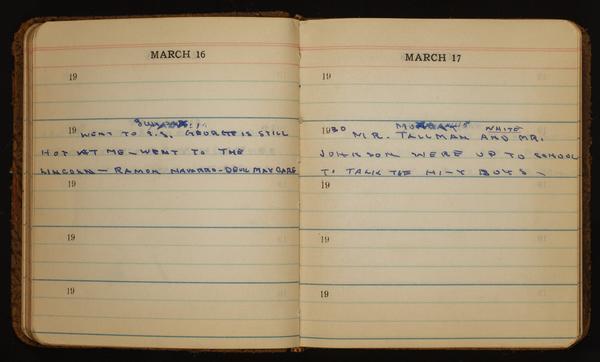 MARCH 16
19
SUNDAY
19 WENT TO S.S. GEORGE IS STILL
HOT AT ME - WENT TO THE
LINCOLN - RAMON NAVARRO - DEVIL MAY CARE
19
19
19
MARCH 17
19
MONDAY WHITE
1930 MR. TALLMAN AND MR.
JOHNSON WERE UP TO SCHOOL
TO TALK THE HI-Y BOYS -
19
19
19